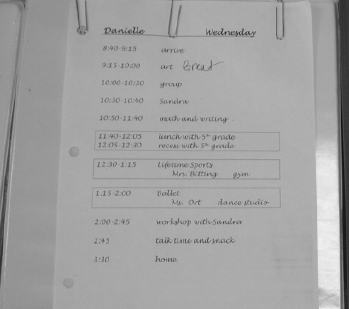 Danielle Wednesday
8:40-9:15 arrive
9:15-10:00 art Great
10:00-10:30 group
10:30-10:50 Sandra
10:50-11:40 math and writing
11:40-12:05 lunch with 5th grade
12:05-12:30 recess with 5th grade
12:30-1:15 Lifetime Sports
Mrs. Bitting gym
1:15-2:00 Ballet
Ms. Ort dance studio
2:00-2:45 workshop with Sandra
2:45 talk time and snack
3:10 home